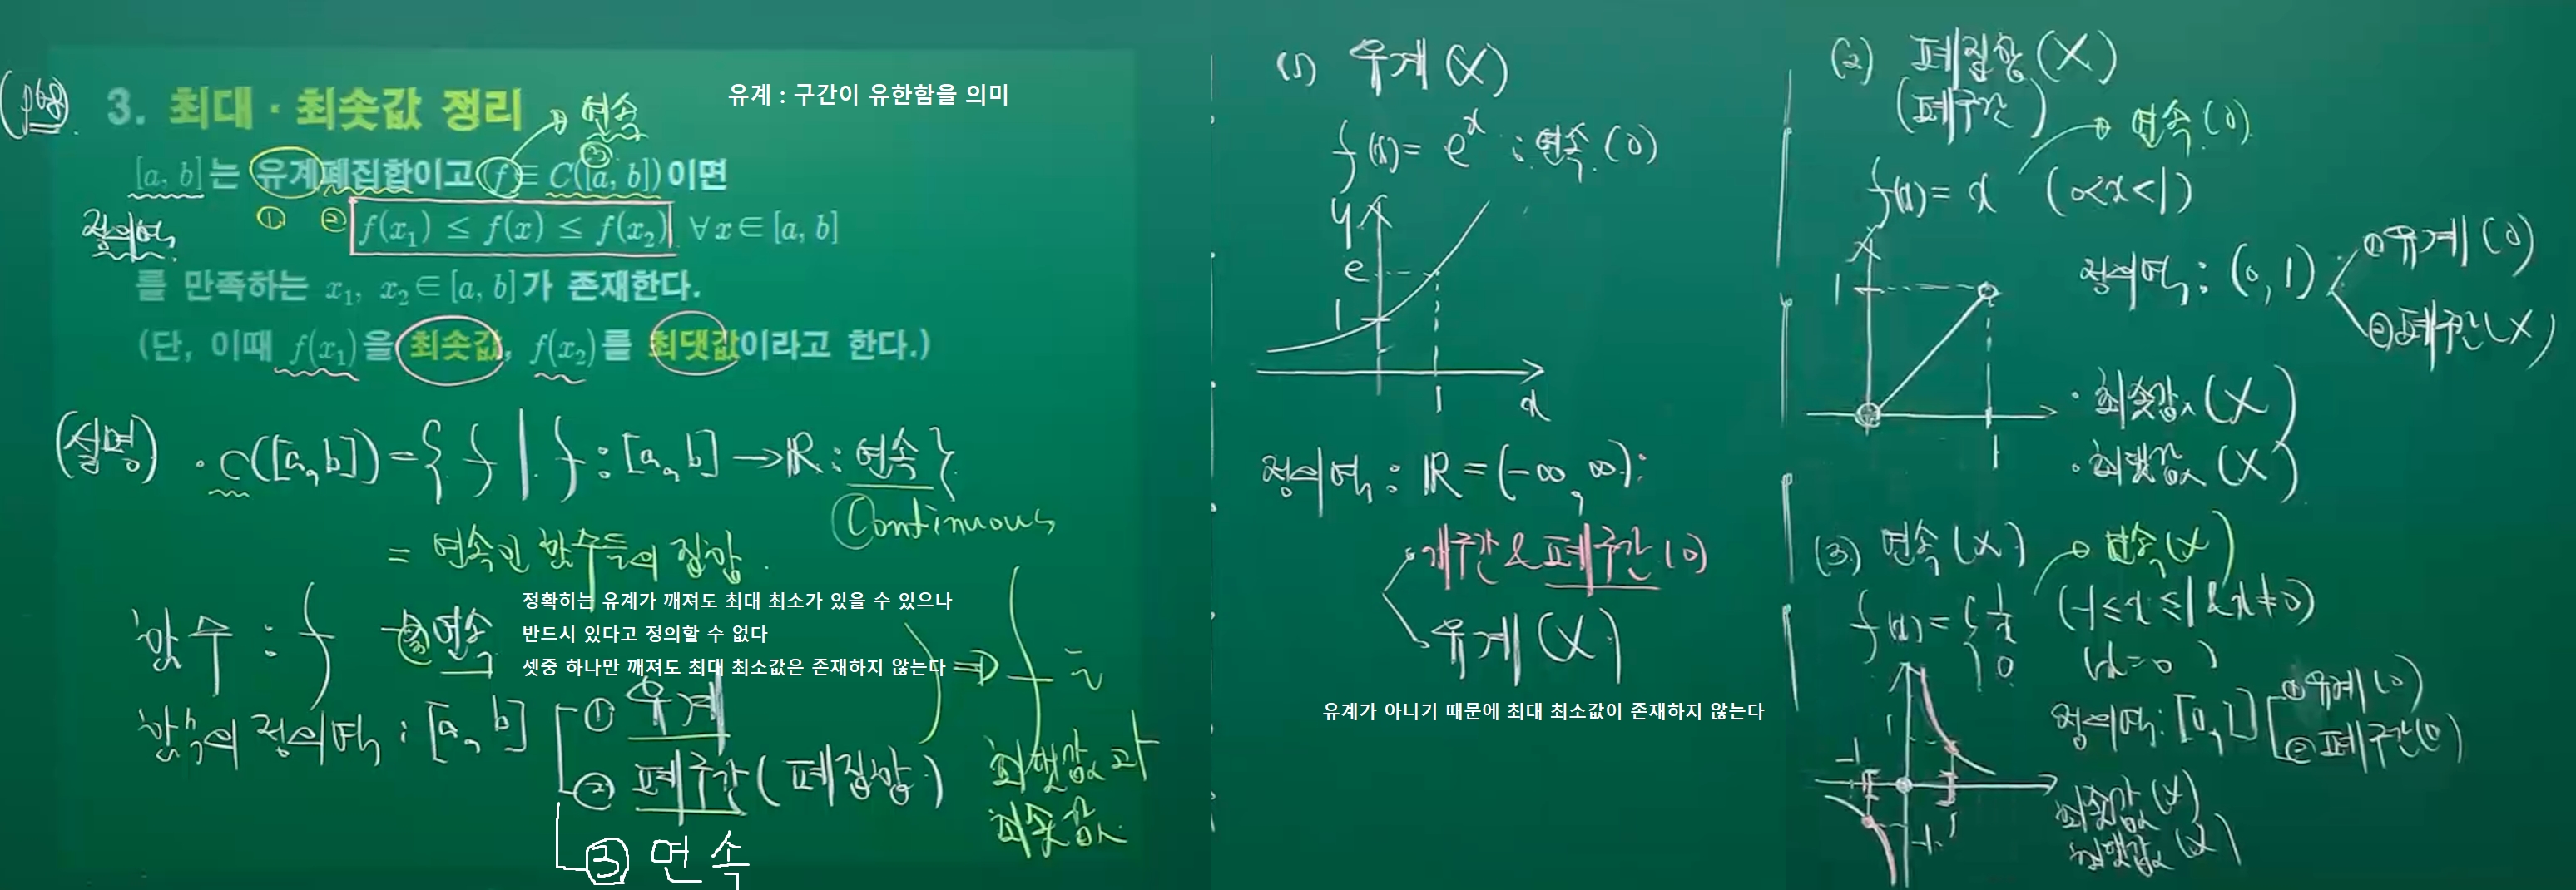 (p68)
3. 최대·최솟값 정리
유계 : 구간이 유한함을 의미
연속
③
[a, b]는 유계폐집합이고 f ∈ C([a, b])이면
① ②
정의역
f(x₁) ≤ f(x) ≤ f(x₂) ∀x∈[a, b]
를 만족하는 x₁, x₂∈[a, b]가 존재한다.
(단, 이때 f(x₁)을 최솟값, f(x₂)를 최댓값이라고 한다.)
(설명) · C([a, b]) = { f | f : [a, b] → ℝ : 연속 }
Continuous
= 연속인 함수들의 집합.
정확히는 유계가 깨져도 최대 최소가 있을 수 있으나
반드시 있다고 정의할 수 없다
셋중 하나만 깨져도 최대 최소값은 존재하지 않는다
함수 : f - ③ 연속
함수의 정의역 : [a, b]
① 유계
② 폐구간 (폐집합)
③ 연속
⇒ f는
최댓값과
최솟값
(1) 유계 (X)
f(x) = eˣ : 연속 (O)
y
e
1
1 x
정의역 : ℝ = (-∞, ∞) :
개구간 & 폐구간 (O)
유계 (X)
유계가 아니기 때문에 최대 최소값이 존재하지 않는다
(2) 폐집합 (X)
(폐구간)
연속 (O)
f(x) = x (0<x<1)
정의역 : (0, 1)
① 유계 (O)
② 폐구간 (X)
1
1
· 최솟값 (X)
· 최댓값 (X)
(3) 연속 (X)
연속 (X)
f(x) = { 1/x (-1≤x≤1 & x≠0)
0 (x=0)
정의역 : [0, 1]
① 유계 (O)
② 폐구간 (O)
-1
1
1
-1
최솟값 (X)
최댓값 (X)